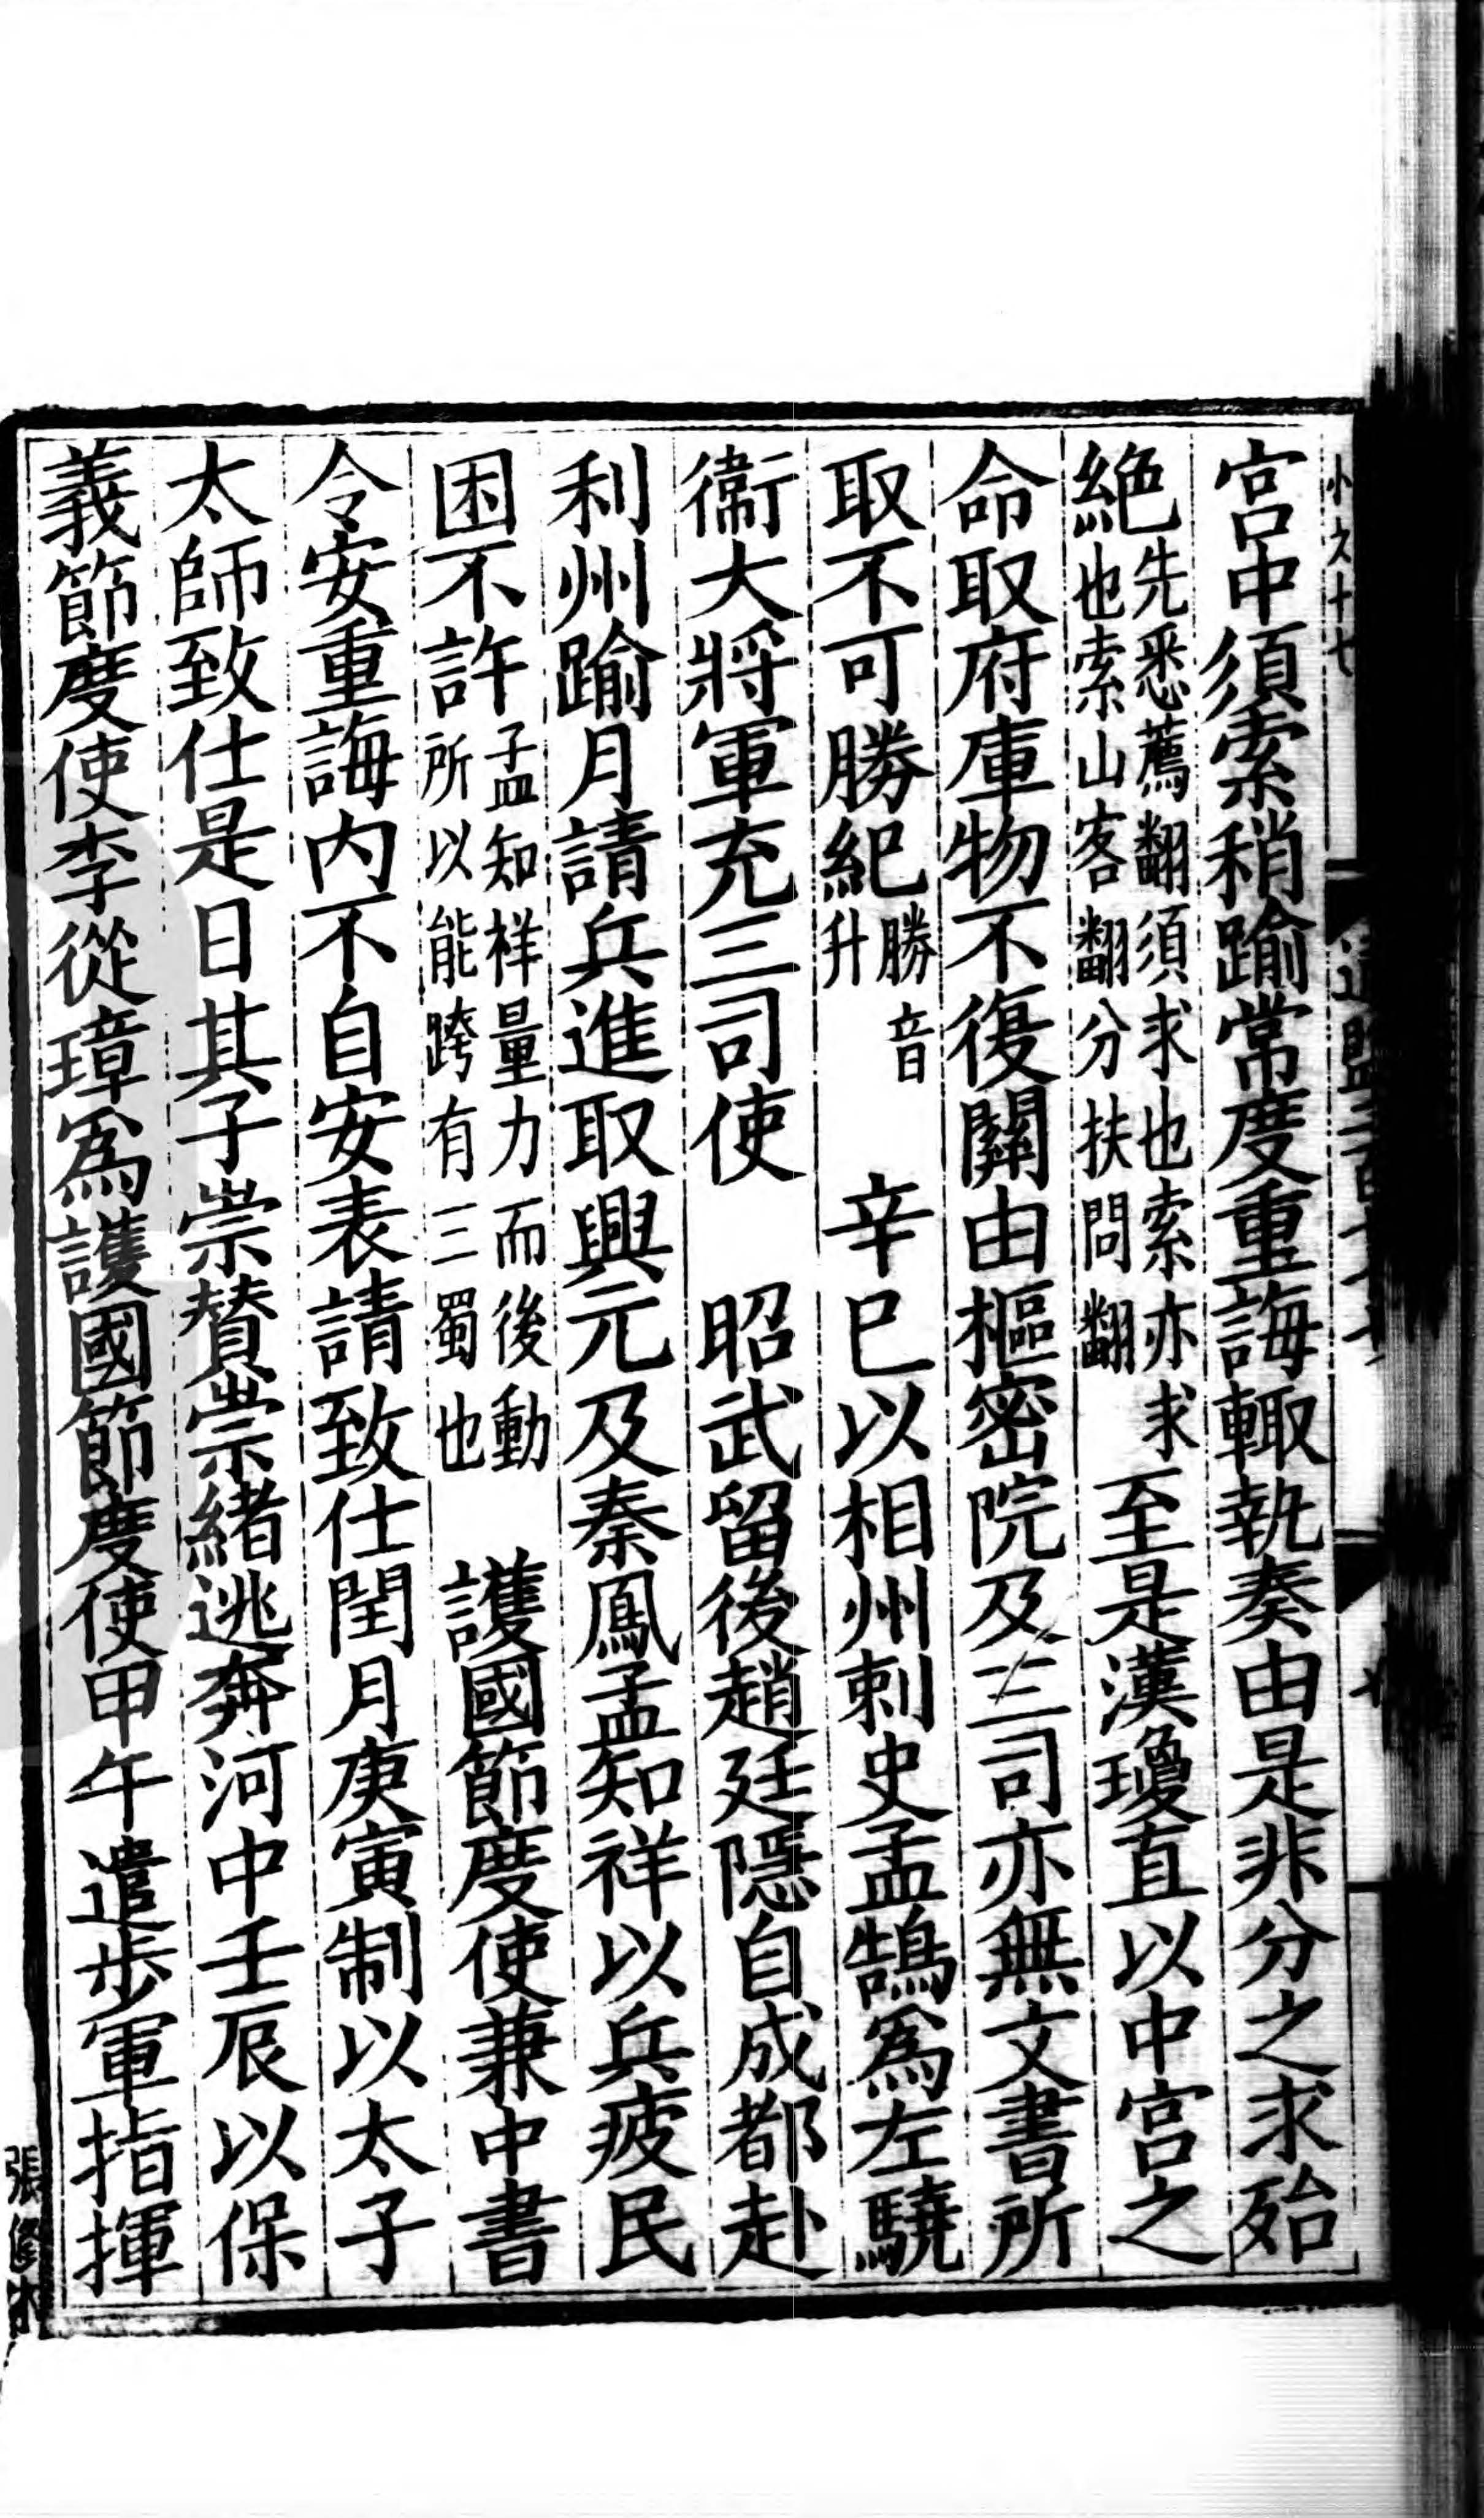 宮中須索稍踰常度重誨輙執奏由是非分之求殆
絶先悉薦翻須求也索亦求也索山客翻分扶問翻至是漢瓊直以中宮之
命取府庫物不復關由樞密院及三司亦無文書所
取不可勝紀勝音升辛巳以相州刺史孟鵠爲左驍
衞大將軍充三司使昭武留後趙廷隱自成都赴
利州踰月請兵進取興元及秦鳳孟知祥以兵疲民
困不許孟知祥量力而後動所以能跨有三蜀也護國節度使兼中書
令安重誨内不自安表請致仕閏月庚寅制以太子
太師致仕是日其子崇賛崇緒逃奔河中壬辰以保
義節度使李從璋爲護國節度使甲午遣步軍指揮